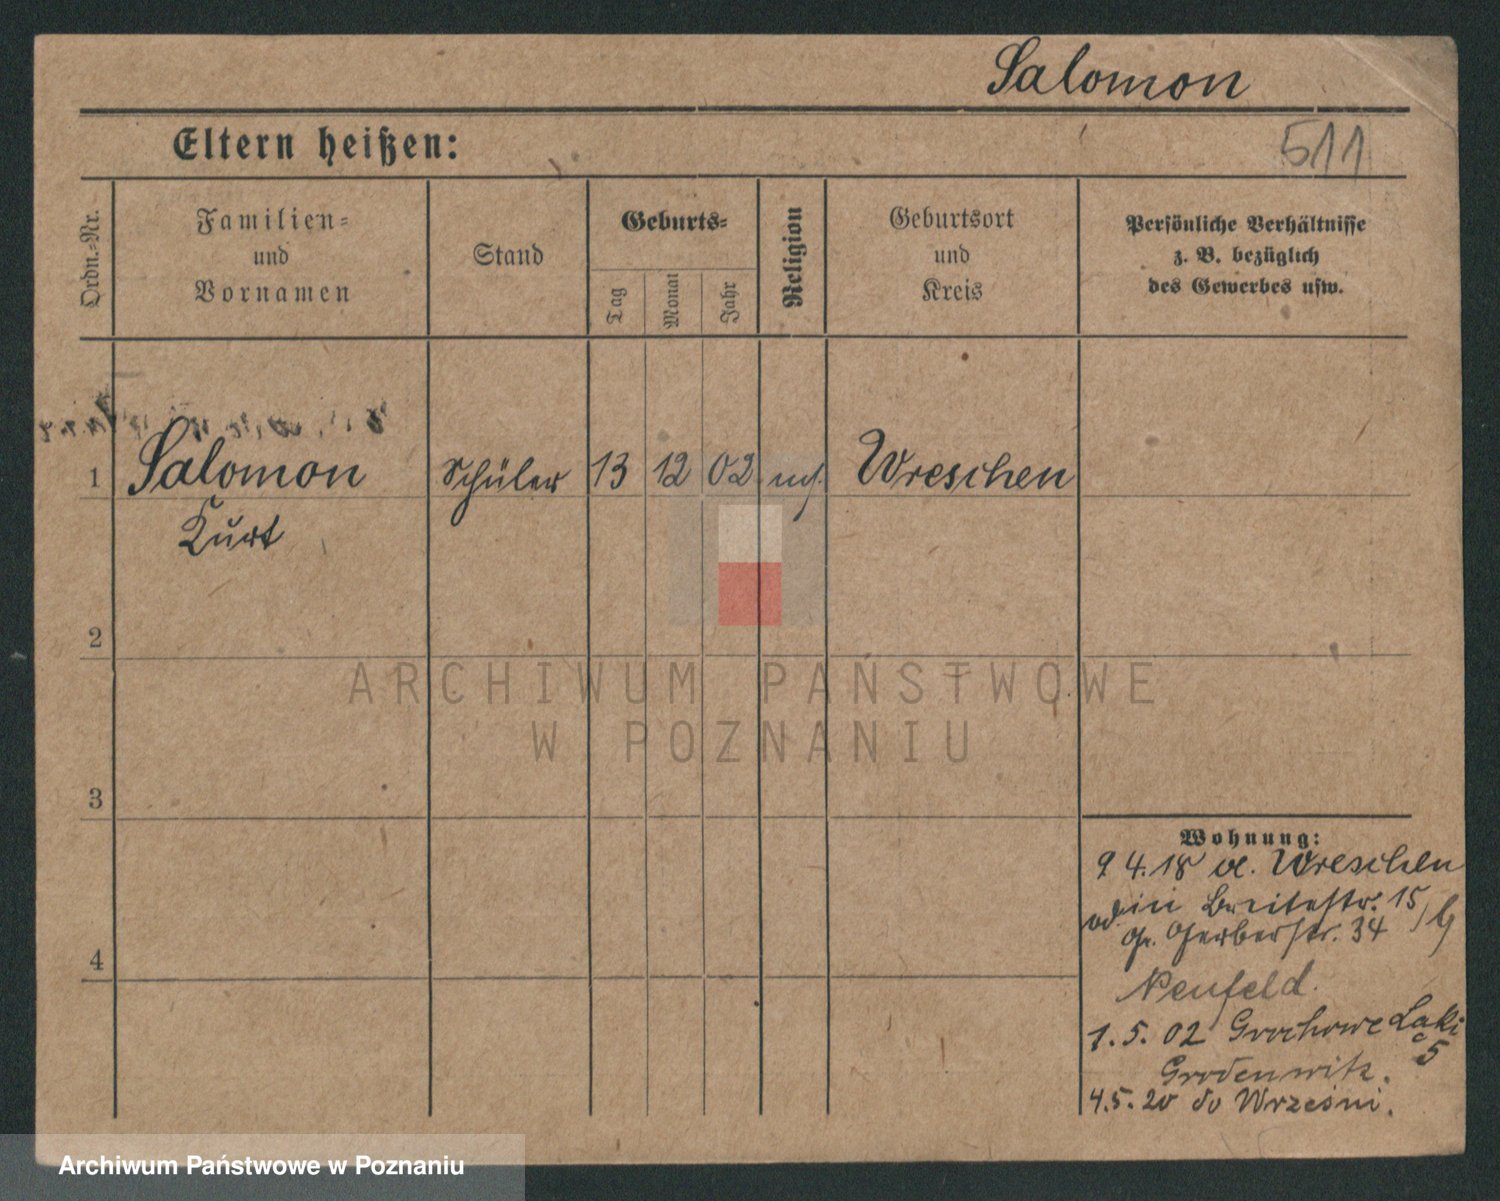 Salomon
Eltern heißen:
511
Ordn.-Nr.
Familien-
und
Vornamen
Stand
Geburts-
Tag
Monat
Jahr
Religion
Geburtsort
und
Kreis
Persönliche Verhältnisse
z. B. bezüglich
des Gewerbes usw.
1
Salomon
Schüler
13
12
02
Wreschen
Kurt
2
3
4
Wohnung:
9 4.18 Wreschen
Breitestr. 15
Gr. Gerberstr. 34
Neufeld.
1.5. 02 Grochowe Łąki
5
4.5. 20 do Wrześni.
ARCHIWUM PAŃSTWOWE
W POZNANIU
Archiwum Państwowe w Poznaniu